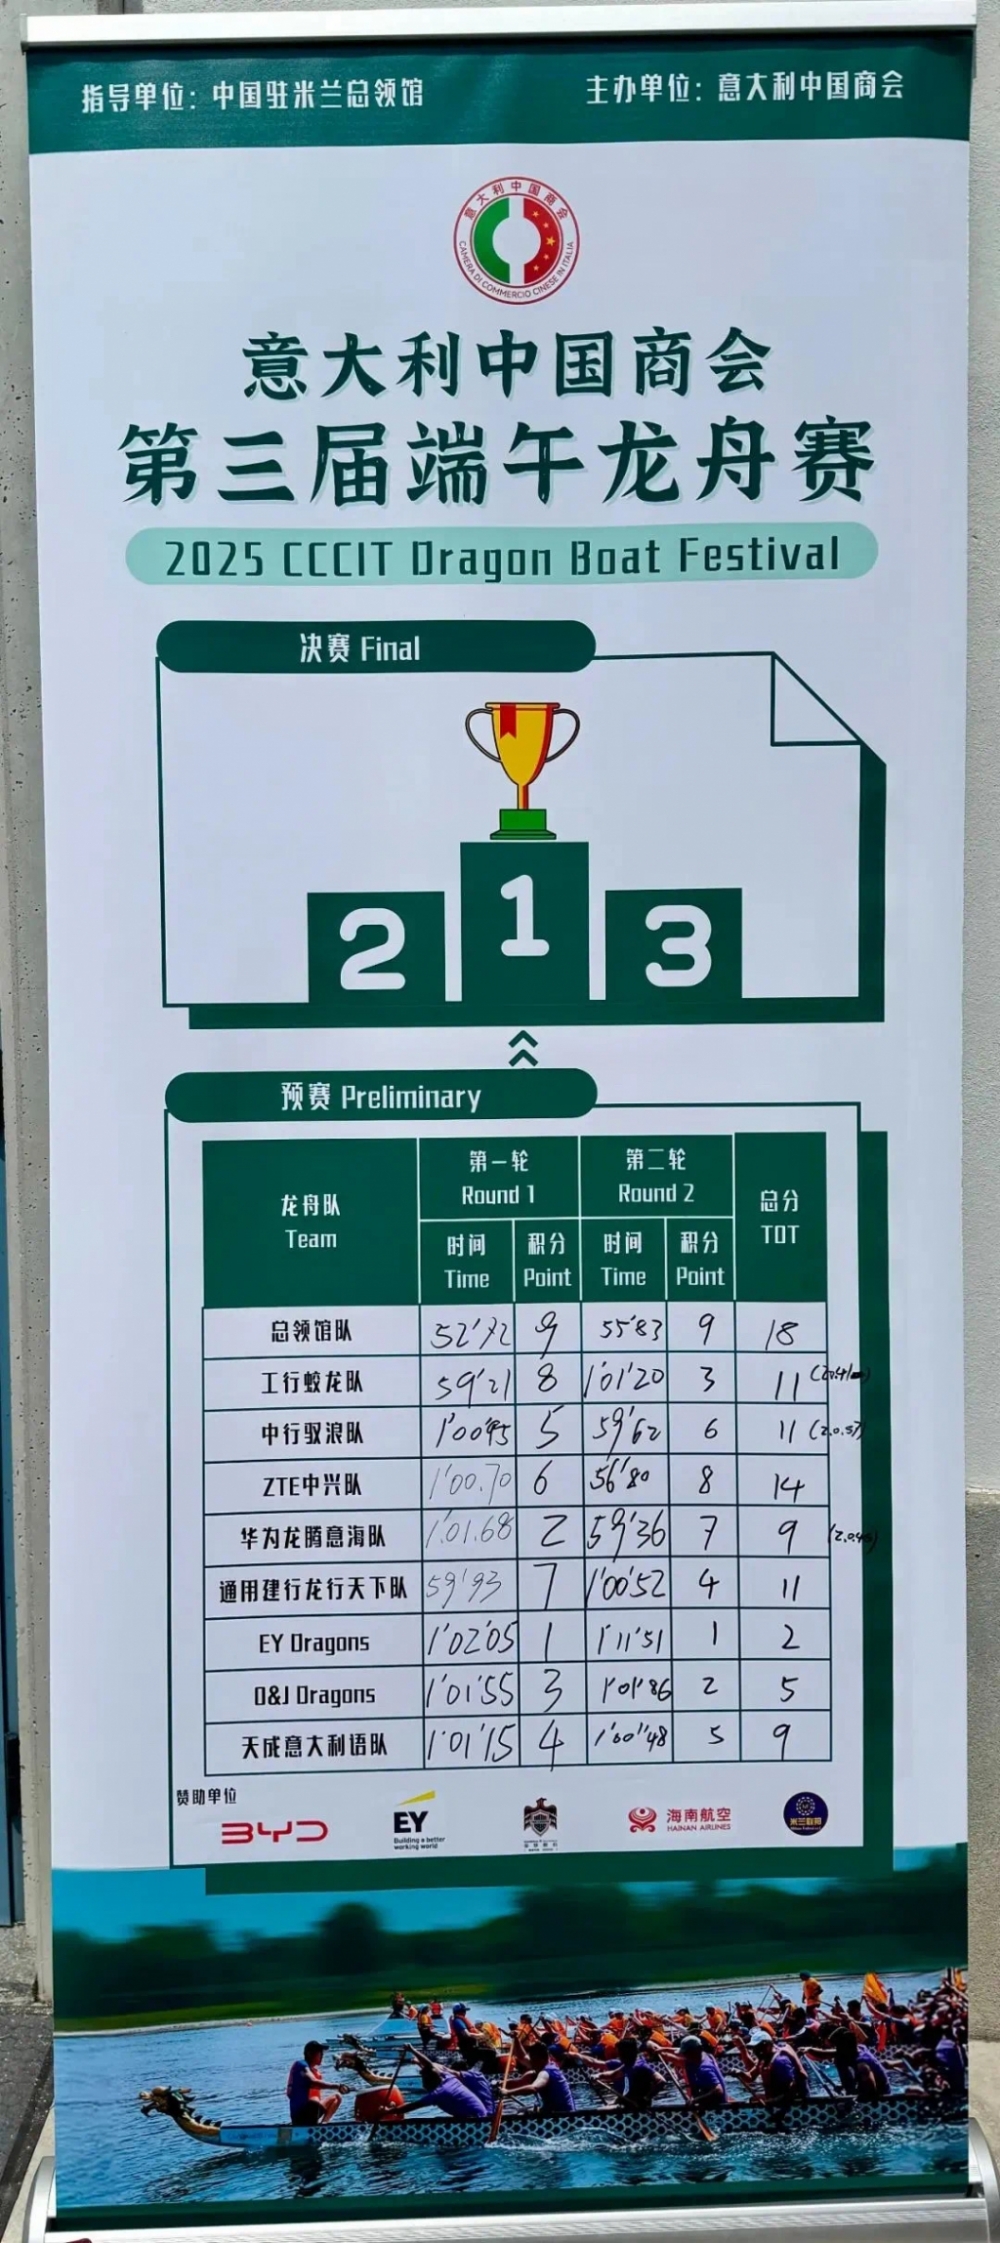 指导单位：中国驻米兰总领馆 主办单位：意大利中国商会
意大利中国商会
CAMERA DI COMMERCIO CINESE IN ITALIA
意大利中国商会
第三届端午龙舟赛
2025 CCCIT Dragon Boat Festival
决赛 Final
2 1 3
预赛 Preliminary
龙舟队 Team 第一轮 Round 1 第二轮 Round 2 总分 TOT
时间 Time 积分 Point 时间 Time 积分 Point
总领馆队 52'72 9 55'83 9 18
工行蛟龙队 59'21 8 1'01'20 3 11
中行驭浪队 1'00'95 5 59'62 6 11 (2.0.57)
ZTE中兴队 1'00.70 6 56'80 8 14
华为龙腾意海队 1'01.68 2 59'36 7 9
通用建行龙行天下队 59'93 7 1'00'52 4 11
EY Dragons 1'02'05 1 1'11'51 1 2
O&J Dragons 1'01'55 3 1'01'86 2 5
天成意大利语队 1'01'15 4 1'00''48 5 9
赞助单位
BYD
EY
Building a better
working world
海南航空
HAINAN AIRLINES